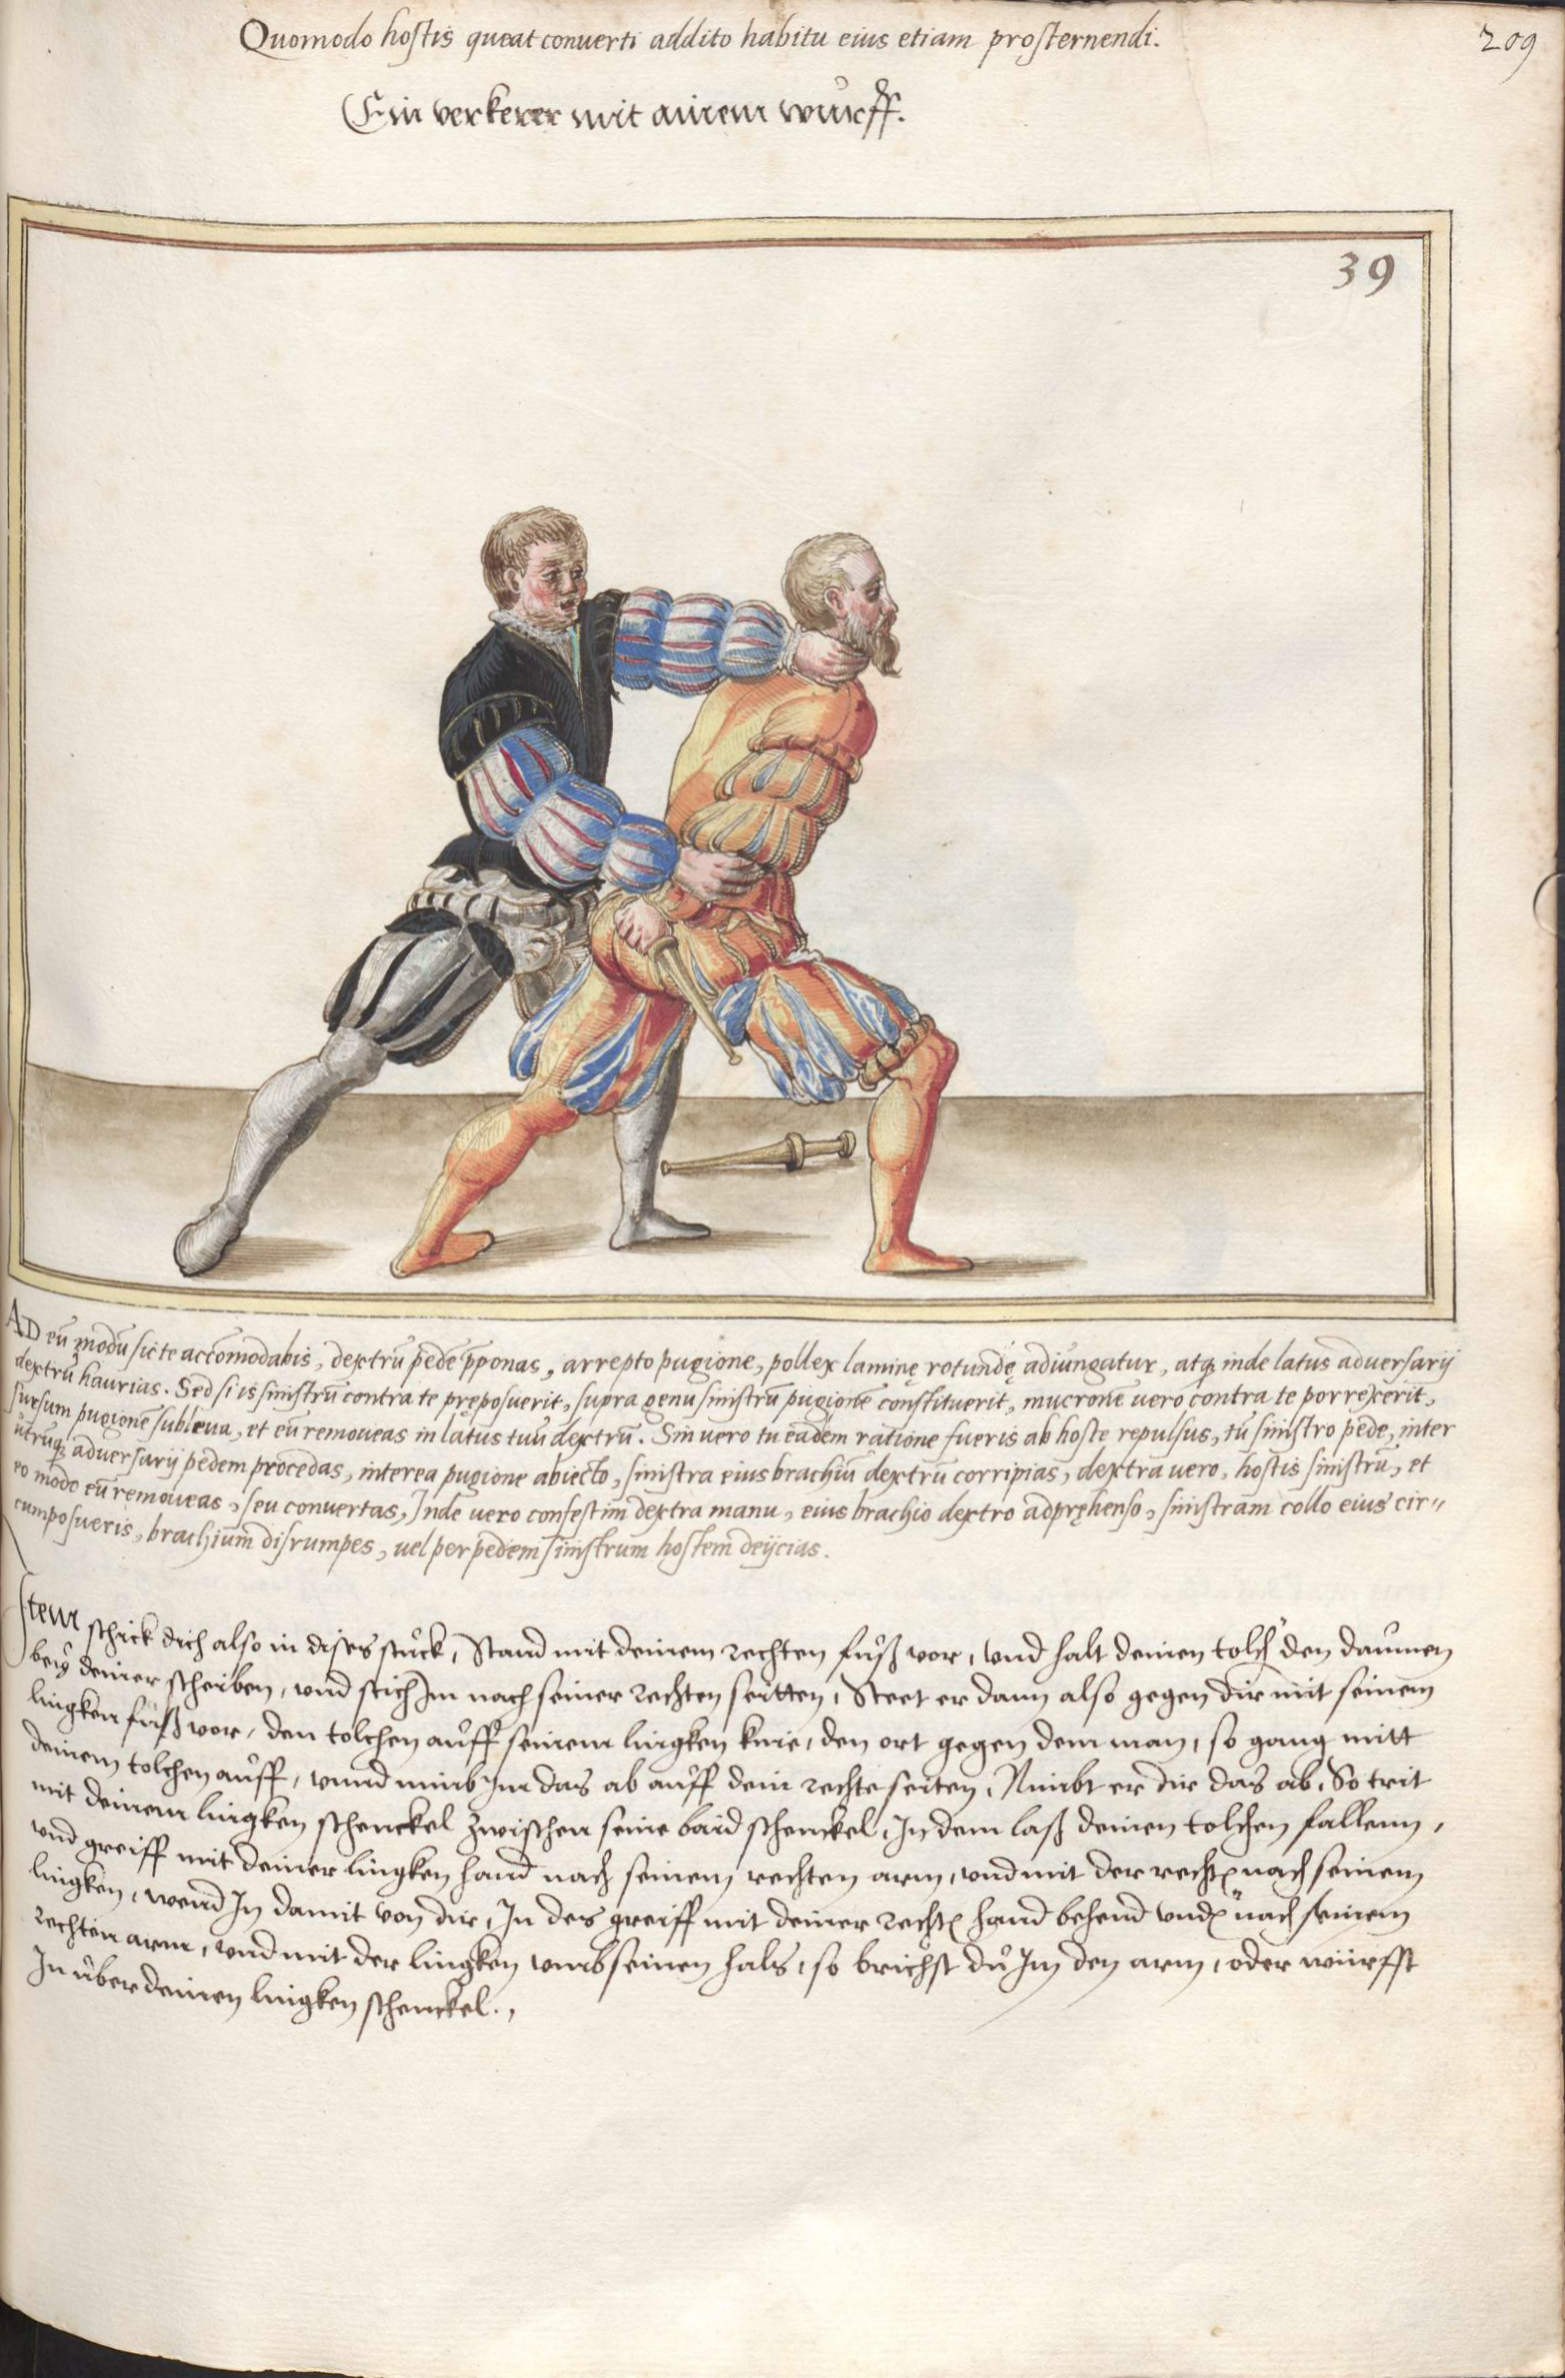 Quomodo hostis queat conuerti addito habitu eius etiam prosternendi.
209
Ein verkerer mit ainem wurff.
39
AD eū modū sic te accōmodabis, dextrū pedē p̄ponas, arrepto pugione, pollex laminę rotundę adiungatur, atq₃ inde latus aduersarij
dextrū haurias. Sed si is sinistrū contra te pręposuerit, supra genu sinistrū pugionē constituerit, mucronē uero contra te porrexerit,
sursum pugionē subleua, et eū remoueas in latus tuū dextrū. Sin uero tu eadem ratione fueris ab hoste repulsus, tū sinistro pede, inter
utrūq₃ aduersarij pedem procedas, interea pugione abiecto, sinistra eius brachiū dextrū corripias, dextra uero, hostis sinistrū, et
eo modo eū remoueas, seu conuertas, Inde uero confestim dextra manu, eius brachio dextro adpręhenso, sinistram collo eius cir〃
cumposueris, brachium disrumpes, uel per pedem sinistrum hostem deijcias.
Item schick dich also in dises stuck, Stand mit deinem rechten fuß vor, vnd halt deinen tolch den daumen
bey deiner scheiben, vnd stich Im nach seiner rechten seitten, Steet er dann also gegen dir mit seinem
lingken fuß vor, den tolchen auff seinem lingken knie, den ort gegen dem man, so gang mitt
deinem tolchen auff, vnnd nimb Im das ab auff dein rechte seiten, Nimbt er dir das ab, So trit
mit deinem lingken schenckel zwischen seine baid schenckel, In dem laß deinen tolchen fallenn,
vnd greiff mit deiner lingken hand nach seinem rechten arm, vnd mit der rechtn̄ nach seinem
lingken, wend In damit von dir, In des greiff mit deiner rechtn̄ hand behend nach seinem
rechten arm, vnd mit der lingken vmb seinen hals, so brichst du Im den arm, oder würffst
In uber deinen lingken schenckel.,